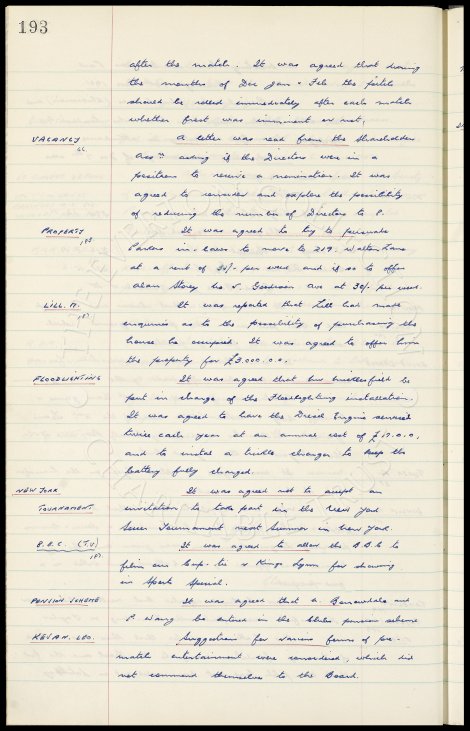 193
after the match. It was agreed that during
the months of Dec Jan + Feb the pitch
should be rolled immediately after each match
whether frost was imminent or not.
VACANCY A letter was read from the Shareholders
Assn asking if the Directors were in a
position to receive a nomination. It was
agreed to consider and explore the possibility
of reducing the number of Directors to
PROPERTY It was agreed to try to persuade
Parkers in-laws to move to 219. Walton Lane
at a rent of 30/- per week and if so to offer
Alan Storey his Goodison Ave at 30/- per week.
LILL. M. It was reported that Lill had made
enquiries as to the possibility of purchasing the
house he occupied. It was agreed to offer him
the property for £3.000.0.0.
FLOODLIGHTING It was agreed that be
put in charge of the Floodlighting installation.
It was agreed to have the Diesel Engine serviced
twice each year at an annual cost of £19.0.0,
and to instal a trickle charger to keep the
battery fully charged.
NEW YORK It was agreed not to accept an
TOURNAMENT invitation to take part in the New York
Soccer Tournament next Summer in New York
B.B.C. (T.V) It was agreed to allow the B.B.C to
film our Cup-tie v Kings Lynn for showing
in Sports Special.
PENSION SCHEME It was agreed that
be entered in the Clubs pension scheme
KEVAN. LEO. Suggestions for various forms of pre-
match entertainment were considered, which did
not commend themselves to the Board.